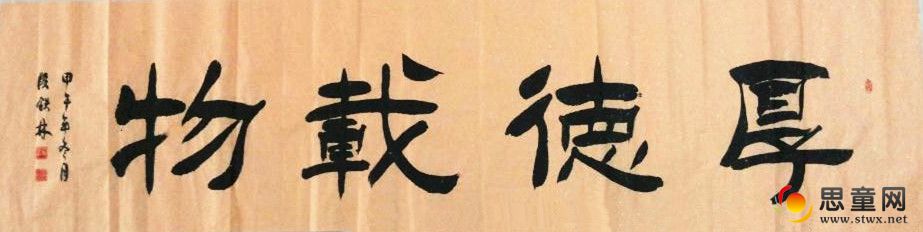 厚德載物
甲午年冬月
段铁林
思童网
www.stwx.net